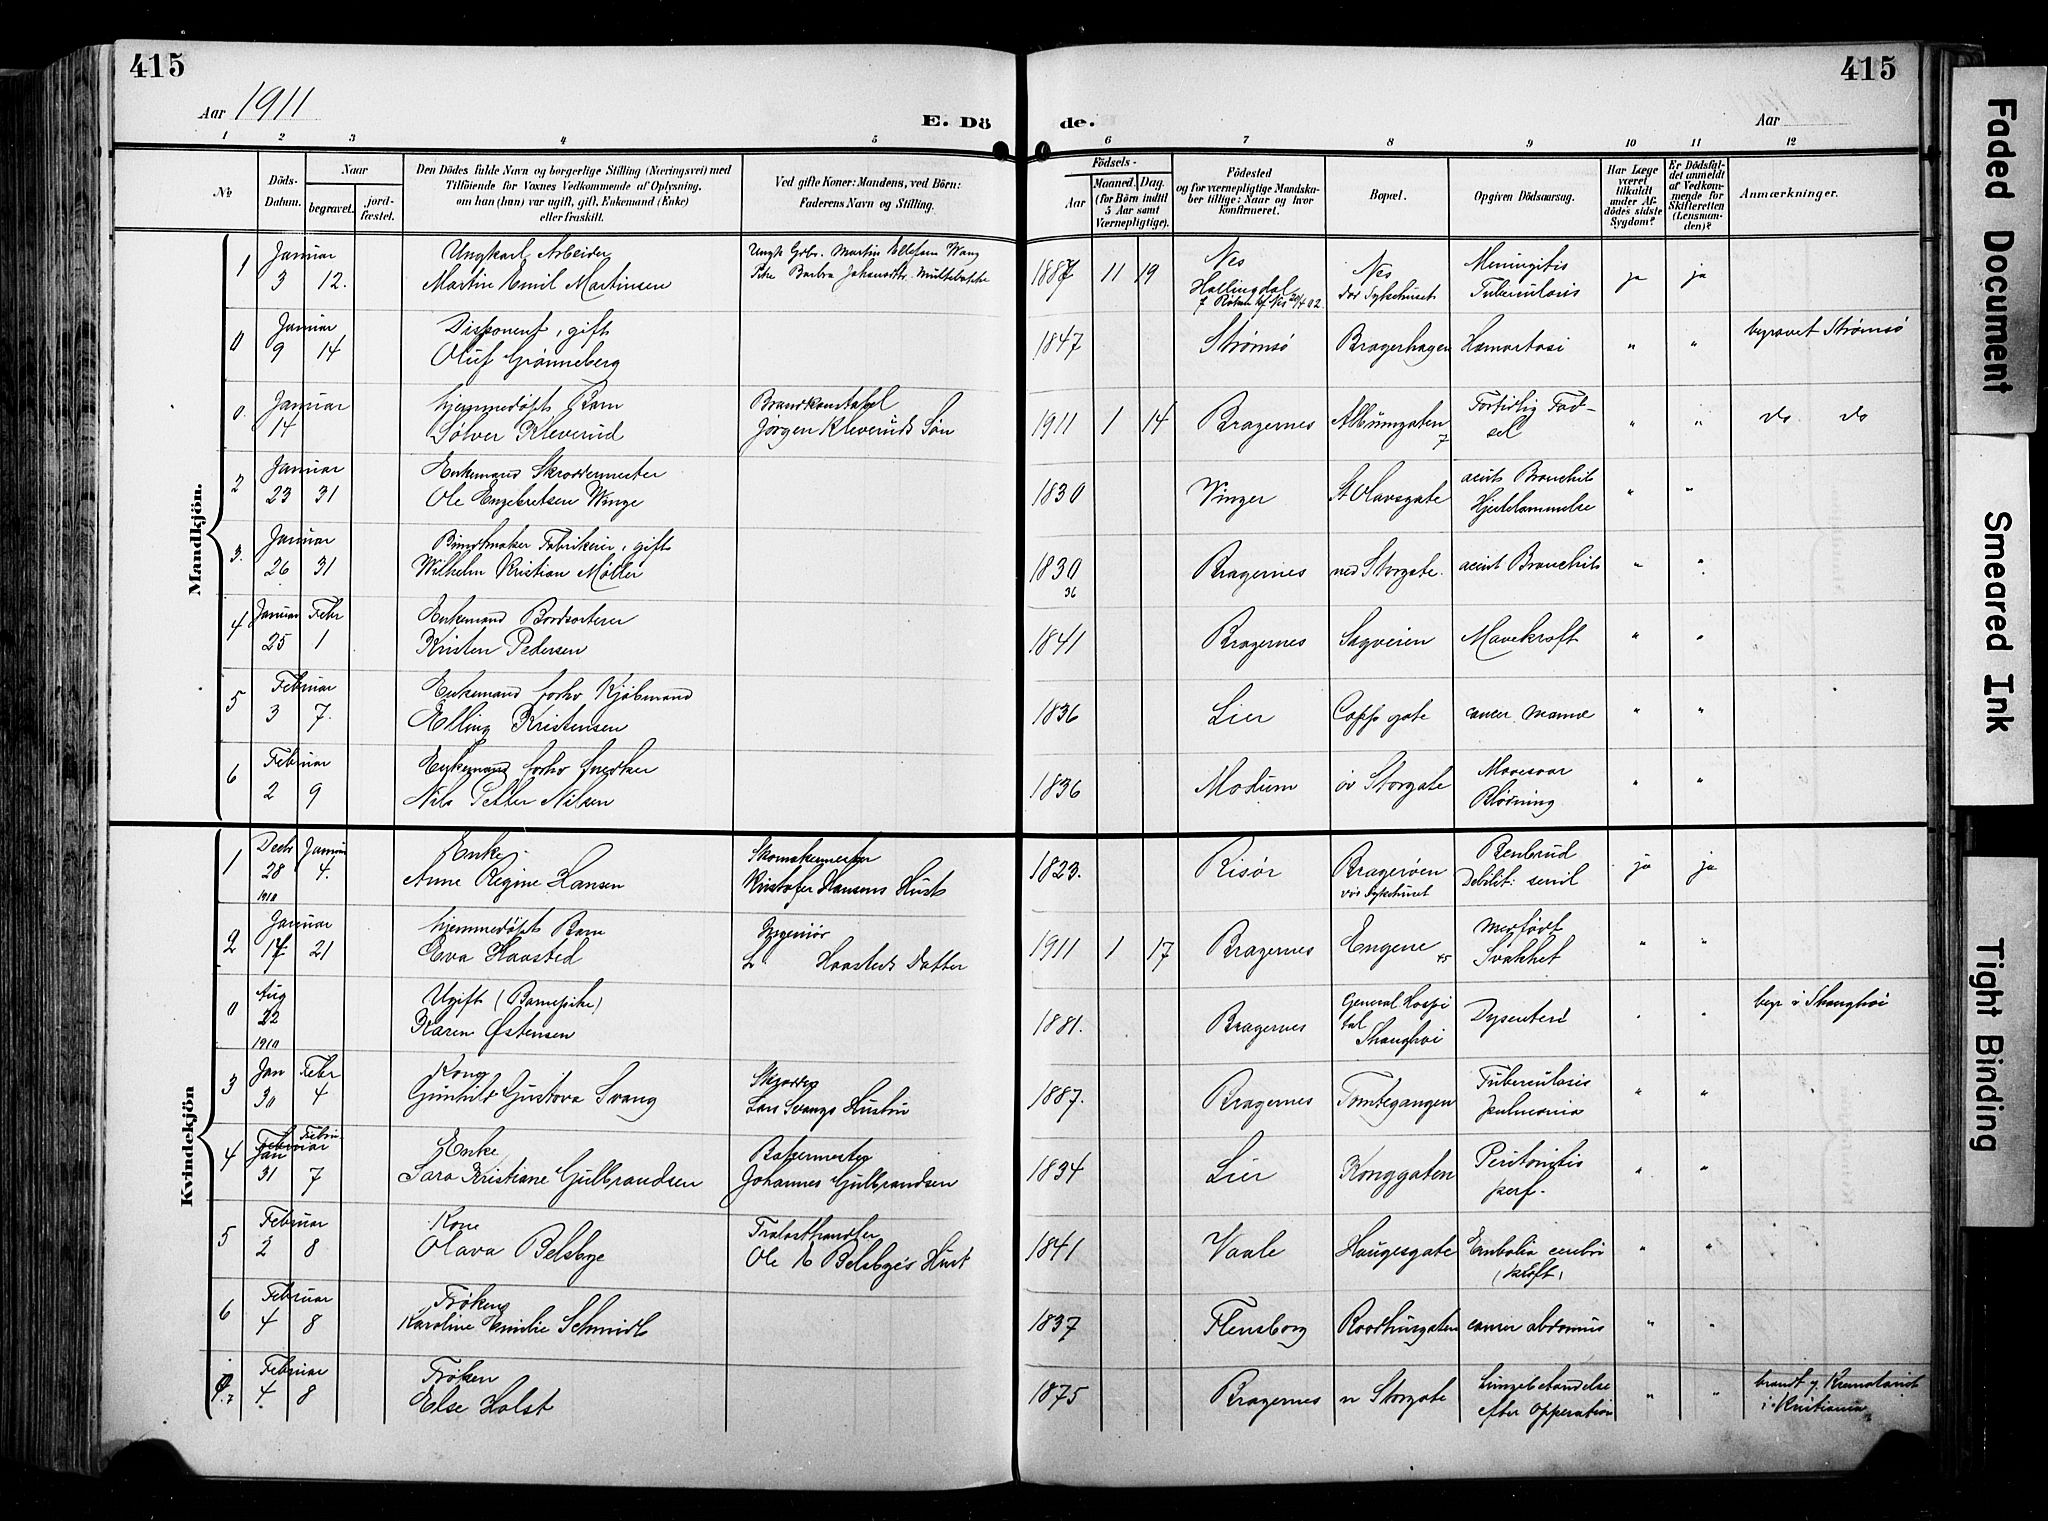 415
415
Aar 1911
E. Dö
de.
Aar
1 2 3 4 5 6 7 8 9 10 11 12
№
Döds-Datum.
Naar
begravet.
jord-fæstet.
Den Dödes fulde Navn og borgerlige Stilling (Næringsvei) med
Tilföiende for Voxnes Vedkommende af Oplysning,
om han (hun) var ugift, gift, Enkemand (Enke)
eller fraskilt.
Ved gifte Koner: Mandens, ved Börn:
Faderens Navn og Stilling.
Födsels-
Aar
Maaned. Dag.
(for Börn indtil
5 Aar samt
Værnepligtige).
Födested
og for værnepligtige Mandska-
ber tillige: Naar og hvor
konfirmeret.
Bopæl.
Opgiven Dödsaarsag.
Har Læge
været
tilkaldt
under Af-
dödes sidste
Sygdom?
Er Dödsfal-
det anmeldt
af Vedkom-
mende for
Skifteretten
(Lensman-
den)?
Anmærkninger.
Mandkjön.
Januar Ungkarl, Arbeider Ungk Grbr. Martin Ellefsen Wang Nes Meningitis
1 3 12. Martin Emil Martinsen Pike Barbra 1887 11 19 Hallingdal Nes Tuberculosis ja ja
Januar Disponent, gift
0 9 14 Oluf Grønneberg 1847 Strømsø Bragerhagen " " begravet Strømsø
Januar hjemmedøpt Barn Brandkonstabel Fortidlig Fød-
0. 14 Sølver Kleverud Jørgen Kleveruds Søn 1911 1 14 Bragernes Albumgaten 7 sel " " do do
Januar Enkemand Skræddermester acut Bronchit
2 23 31 Ole Engebretsen Winge 1830 Vinger St Olavsgate Hjertelammelse " "
Januar Buntmaker Fabrikeier, gift
3. 26 31 Wilhelm Kristian Møller 1830 36 Bragernes ned Storgate. acut Bronchit " "
Januar Febr Enkemand Bordsorterer
4 25 1 Kristen Pedersen 1841 Bragernes Sagveien Mavekræft " "
Februar Enkemand forhv Kjøbmand
5 3 7. Elling Kristensen 1836 Lier Capp gate cancer mamæ " "
Februar Enkemand forhv snedker Mavesaar
6 2 9 Nils Petter Nilsen 1836 Modum øv Storgate Blødning " "
Kvindekjön
Decbr Januar Enke. Skomakermester Benbrud
1 28 4. Anne Regine Hansen Kristofer Hansens Hust 1823. Risør Bragerøen Debilit: senil ja ja
1910
Januar hjemmedøpt Barn Ingeniør medfødt
2 17 21 Eva Haasted L Haasteds Datter 1911 1 17 Bragernes Engene 45 Svakhet " "
Aug Ugift (Barnepike) General Hospi
0 22 Karen Østensen 1881. Bragernes tal Shanghai Dysenteri " " begr i Shanghai
1910
Jan Febr Kone Skrædder Tuberculosis
3 30 4 Gunhild Gustava Svang Lars Svangs Hustru 1887. Bragernes Tomtegangen pulmonia " "
Februar Jan Februar Enke Bakermester Peritonitis
4 31 7 Sara Kristiane Gulbrandsen Johannes Gulbrandsen 1834 Lier Konggaten perf. " "
Februar Kone Trælasthandler
5 2 8 Olava Belsbye Ole K Belsbyes Hust 1841 Vaale Haugesgate Embolia cerebri " "
Februar Frøken
6 4 8 Karoline Emilie Schmidt 1837 Flensborg Raadhusgaten cancer abdominis " "
Februar Frøken Lungebetændelse brandt i Krematoriet
7 4. 8 Else Holst 1875 Bragernes n Storgate efter Opperation " " i Kristiania
Faded Document
Smeared Ink
Tight Binding